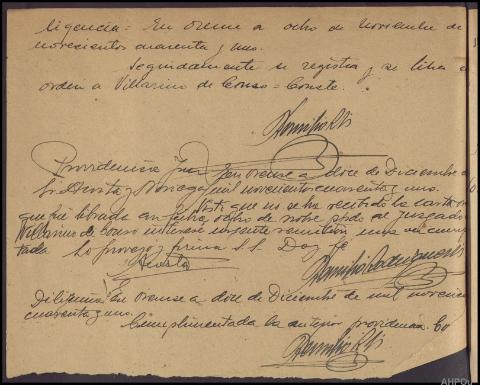 ligencia = En Orense a ocho de Noviembre de
novecientos cuarenta y uno.
Seguidamente se registra y se libra
orden a Villarino de Conso = Conste.
Providencia Juez En Orense a doce de Diciembre
Sr. Acosta y Noriega mil novecientos cuarenta y uno.
Visto que no se ha recibido la carta
que fue librada en fecha, ocho de nobre ppdo al Juzgado
Villarino de Conso interese urgente remisión una vez
tada Lo proveyó y firma S.S. Doy fé
Acosta
Diligencia: En Orense a doce de Diciembre de mil novecien
cuarenta y uno.
Cumplimentada la anterior providencia.
AHPOu